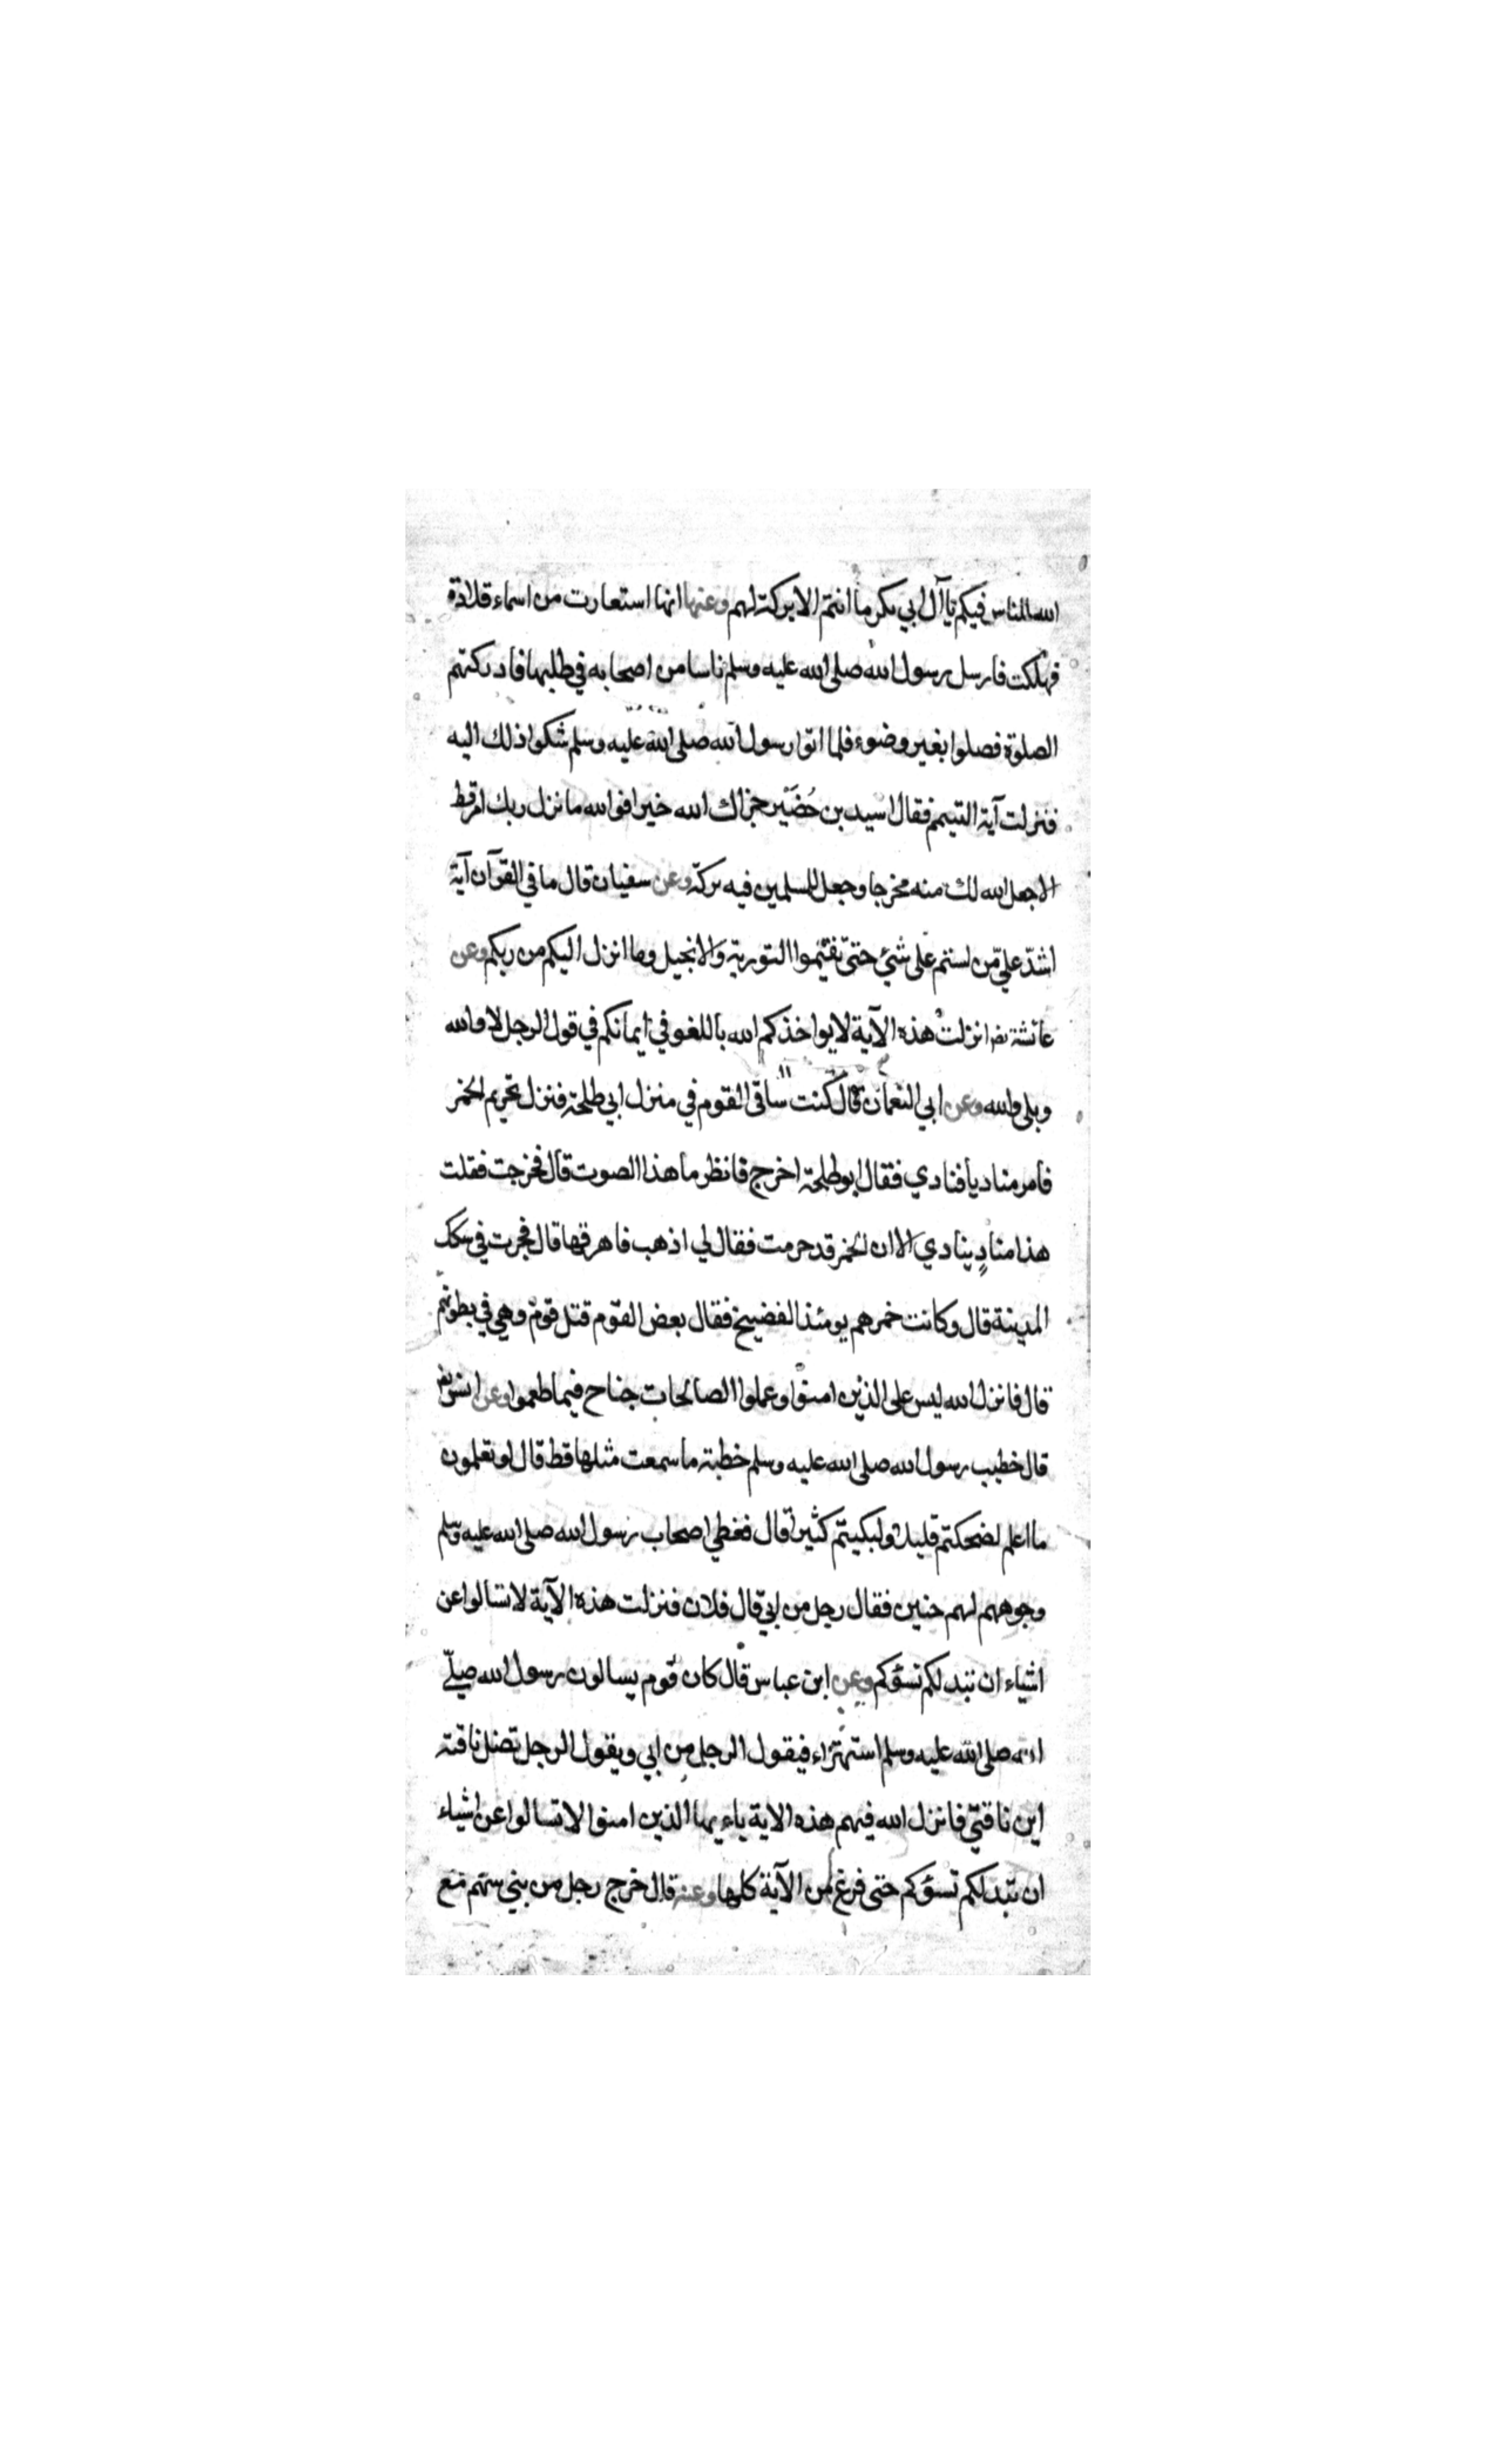 الله للناس فيكم يا آل ابي بكر ما انتم الا بركة لهم وعنها انها استعارت من اسماء قلادة
فهلكت فارسل رسول الله صلى الله عليه وسلم ناسا من اصحابه في طلبها فادركتهم
الصلوة فصلوا بغير وضوء فلما اتوا رسول الله صلى الله عليه وسلم شكوا ذلك اليه
فنزلت آية التيمم فقال اسيد بن حُضَيْر جزاك الله خيرا فوالله ما نزل ربك امر قط
الا جعل الله لك منه مخرجا وجعل للمسلمين فيه بركة وعن سفيان قال ما في القرآن آية
اشدّ عليّ من لستم على شئ حتى تقيموا التورية والانجيل وما انزل اليكم من ربكم وعن
عائشة رضـ انزلت هذه الآية لا يواخذكم الله باللغو في ايمانكم في قول الرجل لا والله
وبلى والله وعن ابي النعمان قال كنت ساقي القوم في منزل ابي طلحة فنزل تحريم الخمر
فامر مناديا فنادي فقال ابو طلحة اخرج فانظر ما هذا الصوت قال فخرجت فقلت
هذا منادٍ ينادي الا ان الخمر قد حرمت فقال لي اذهب فاهرقها قال فجرت في سكك
المدينة قال وكانت خمرهم يومئذ الفضيخ فقال بعض القوم قتل قوم وهي في بطونهم
قال فانزل الله ليس على الذين امنوا وعملوا الصالحات جناح فيما طعموا وعن انس رضـ
قال خطب رسول الله صلى الله عليه وسلم خطبة ما سمعت مثلها قط قال لو تعلمون
ما اعلم لضحكتم قليلا ولبكيتم كثيرا قال فغطي اصحاب رسول الله صلى الله عليه وسلم
وجوههم لهم حنين فقال رجل من ابي قال فلان فنزلت هذه الآية لا تسالوا عن
اشياء ان تبد لكم تسؤكم وعن ابن عباس قال كان قوم يسالون رسول الله صلّے
الله صلى الله عليه وسلم استهزاء فيقول الرجل من ابي ويقول الرجل تضل ناقته
اين ناقتي فانزل الله فيهم هذه الاية ياءيها الذين امنوا لا تسالوا عن اشياء
ان تبد لكم تسؤكم حتى فرغ من الآية كلها وعنه قال خرج رجل من بني سهم مع